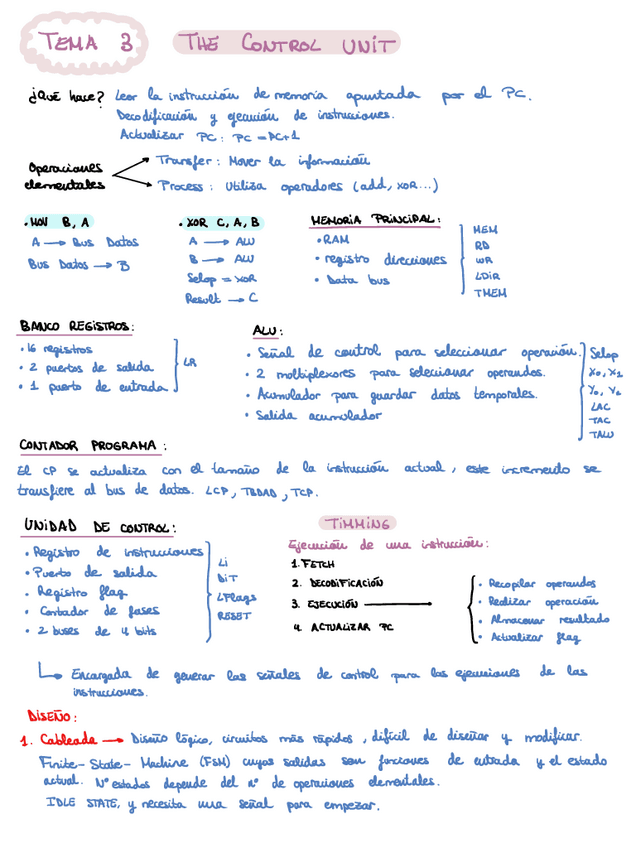 TEMA 3 THE CONTROL UNIT
¿Qué hace? Leer la instrucción de memoria apuntada por el PC.
Decodificación y ejecución de instrucciones.
Actualizar PC: PC = PC+1
Operaciones elementales
Transfer: Mover la información
Process: Utiliza operadores (add, XOR...)
• MOV B, A
A → Bus Datos
Bus Datos → B
• XOR C, A, B
A → ALU
B → ALU
Selop = XOR
Result → C
MEMORIA PRINCIPAL:
• RAM
• registro direcciones
• Data bus
MEM
RD
WR
LDIR
TMEM
BANCO REGISTROS:
• 16 registros
• 2 puertos de salida
• 1 puerto de entrada
LR
ALU:
• Señal de control para seleccionar operación.
• 2 moltiplexores para seleccionar operandos.
• Acumulador para guardar datos temporales.
• Salida acumulador
Selop
X0, X1
Y0, Y1
LAC
TAC
TALU
CONTADOR PROGRAMA:
El CP se actualiza con el tamaño de la instrucción actual, este incremento se
transfiere al bus de datos. LCP, TBDAD, TCP.
UNIDAD DE CONTROL:
• Registro de instrucciones
• Puerto de salida
• Registro flag
• Contador de fases
• 2 buses de 4 bits
Li
DiT
LFlags
RESET
TIMMING
Ejecución de una instrucción:
1. FETCH
2. DECODIFICACIÓN
3. EJECUCIÓN
4. ACTUALIZAR PC
• Recopilar operandos
• Realizar operación
• Almacenar resultado
• Actualizar flag
Encargada de generar las señales de control para las ejecuciones de las
instrucciones.
DISEÑO:
1. Cableada → Diseño lógico, circuitos más rápidos, difícil de diseñar y modificar.
Finite-State-Machine (FSM) cuyas salidas son funciones de entrada y el estado
actual. Nº estados depende del nº de operaciones elementales.
IDLE STATE, y necesita una señal para empezar.